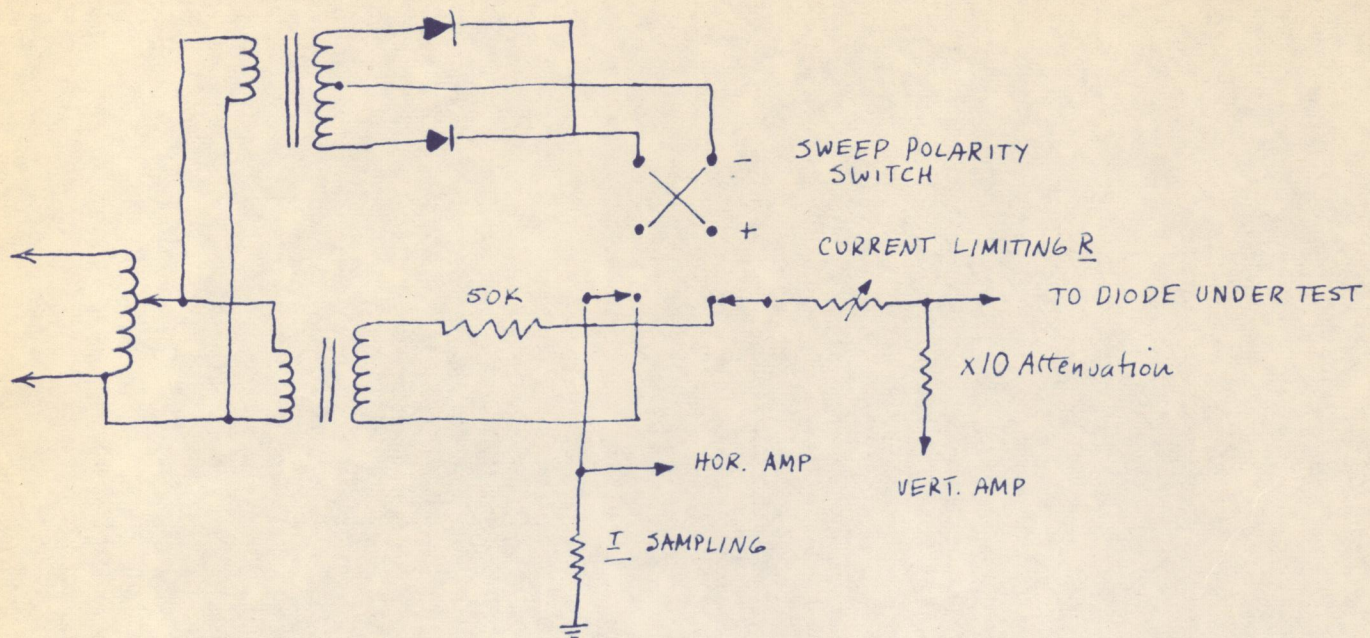 - SWEEP POLARITY
SWITCH
+
CURRENT LIMITING R
50K
TO DIODE UNDER TEST
x10 Attenuation
HOR. AMP
VERT. AMP
I SAMPLING